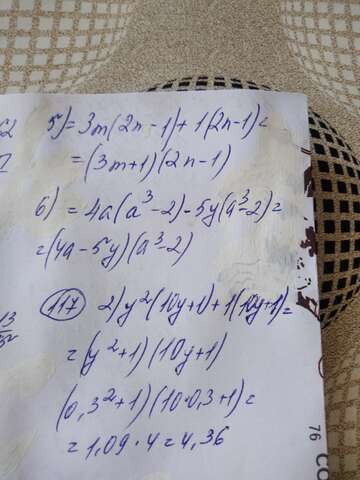 5) = 3m(2n-1)+1(2n-1)=
= (3m+1)(2n-1)
6) = 4a(a³-2)-5y(a³-2)=
= (4a-5y)(a³-2)
117 2) y²(10y+1)+1(10y+1)=
= (y²+1)(10y+1)
(0,3²+1)(10·0,3+1)=
= 1,09·4=4,36
76